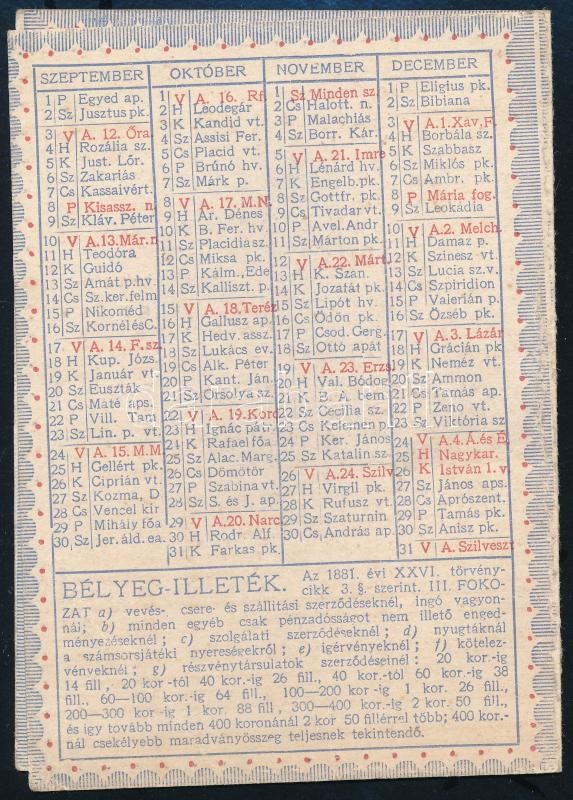 SZEPTEMBER
1 P Egyed ap.
2 Sz Jusztus pk.
3 V A. 12. Őra.
4 H Rozália sz.
5 K Just. Lőr.
6 Sz Zakariás
7 Cs Kassaivért.
8 P Kisassz. n.
9 Sz Kláv. Péter
10 V A.13.Már.n
11 H Teodóra
12 K Guidó
13 Sz Amát p.hv
14 Cs Sz.ker.felm
15 P Nikoméd
16 Sz KornélésC.
17 V A. 14. F.sz.
18 H Kup. Józs.
19 K Január vt.
20 Sz Euszták
21 Cs Máté aps.
22 P Vill. Tam
23 Sz Lin. p. vt.
24 V A. 15. M.M.
25 H Gellért pk.
26 K Ciprián vt.
27 Sz Kozma, D
28 Cs Vencel kir
29 P Mihály főa
30 Sz Jer.áld.ea.
OKTÓBER
1 V A. 16. Rf.
2 H Leodegár
3 K Kandid vt.
4 Sz Assisi Fer.
5 Cs Placid vt.
6 P Brúnó hv.
7 Sz Márk p.
8 V A. 17. M.N.
9 H Ar. Dénes
10 K B. Fer. hv.
11 Sz Placidia sz.
12 Cs Miksa pk.
13 P Kálm., Ede
14 Sz Kalliszt. p.
15 V A. 18. Teréz
16 H Gallusz ap.
17 K Hedv. assz.
18 Sz Lukács ev.
19 Cs Alk. Péter
20 P Kant. Ján.
21 Sz Orsolya sz.
22 V A. 19. Kord
23 H Ignác pátr
24 K Rafael főa
25 Sz Alac. Marg.
26 Cs Dömötör
27 P Szabina vt.
28 Sz S. és J. ap.
29 V A. 20. Narc
30 H Rodr. Alf.
31 K Farkas pk.
NOVEMBER
1 Sz Minden sz.
2 Cs Halott. n.
3 P Malachiás
4 Sz Borr. Kár.
5 V A. 21. Imre
6 H Lénárd hv.
7 K Engelb. pk.
8 Sz Gottfr. pk.
9 Cs Tivadar vt.
10 P Avel. Andr
11 Sz Márton pk.
12 V A.22. Márt.
13 H K. Szan.
14 K Jozafát pk.
15 Sz Lipót hv.
16 Cs Ödön pk.
17 P Csod. Gerg.
18 Sz Ottó apát
19 V A. 23. Erzs.
20 H Val. Bódog
21 K B. A. bem.
22 Sz Cecilia sz.
23 Cs Kelemen p.
24 P Ker. János
25 Sz Katalin sz.
26 V A.24. Szilv.
27 H Virgil pk.
28 K Rufusz vt.
29 Sz Szaturnin
30 Cs András ap.
DECEMBER
1 P Eligius pk.
2 Sz Bibiana
3 V A.1.Xav.F.
4 H Borbála sz.
5 K Szabbasz
6 Sz Miklós pk.
7 Cs Ambr. pk.
8 P Mária fog.
9 Sz Leokadia
10 V A.2. Melch.
11 H Damaz p.
12 K Szinesz vt.
13 Sz Lucia sz.v.
14 Cs Szpiridion
15 P Valerián p.
16 Sz Özséb pk.
17 V A.3. Lázár
18 H Grácián pk
19 K Neméz vt.
20 Sz Ammon
21 Cs Tamás ap.
22 P Zeno vt.
23 Sz Viktória sz
24 V A.4.Á.és É.
25 H Nagykar.
26 K István 1. v.
27 Sz János aps.
28 Cs Aprószent.
29 P Tamás pk.
30 Sz Anisz pk.
31 V A. Szilveszt
BÉLYEG-ILLETÉK. Az 1881. évi XXVI. törvény-
cikk 3. §. szerint. III. FOKO-
ZAT a) vevés-, csere- és szállítási szerződéseknél, ingó vagyon-
nál; b) minden egyéb csak pénzadósságot nem illető enged-
ményezéseknél; c) szolgálati szerződéseknél; d) nyugtáknál
a számsorsjátéki nyereségekről; e) igérvényeknél; f) kötelez-
vényeknél; g) részvénytársulatok szerződéseinél: 20 kor.-ig
14 fill., 20 kor.-tól 40 kor.-ig 26 fill., 40 kor.-tól 60 kor.-ig 38
fill., 60—100 kor.-ig 64 fill., 100—200 kor.-ig 1 kor. 26 fill.,
200—300 kor-ig 1 kor. 88 fill, 300—400 kor.-ig 2 kor. 50 fill.,
és igy tovább minden 400 koronánál 2 kor 50 fillérrel több; 400 kor.-
nál csekélyebb maradványösszeg teljesnek tekintendő.